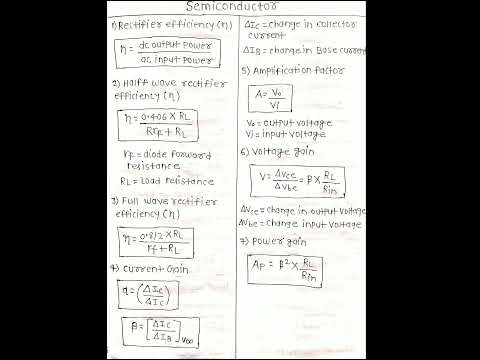 Semiconductor
1) Rectifier efficiency (η)
η = dc output power / ac input power
2) Halff wave rectifier
efficiency (η)
η = 0.406 × RL / Rrf + RL
rf = diode forword
resistance
RL = Load resistance
3) Full wave rectifier
efficiency (η)
η = 0.812 × RL / rf + RL
4) Current Gain
α = (ΔIc / ΔIc)
β = [ΔIc / ΔIB]
ΔIc = change in collector
current
ΔIB = change in Base current
5) Amplification factor
A = Vo / Vi
Vo = output voltage
Vi = input voltage
6) Voltage gain
V = ΔVce / ΔVbe = β × RL / Rin
ΔVce = change in output voltage
ΔVbe = change input voltage
7) Power gain
Ap = β² × RL / Rin